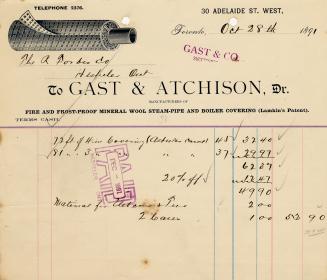 TELEPHONE 2376.
30 ADELAIDE ST. WEST,
Toronto, Oct 28th 1891
GAST & CO.
The R Forbes Co
Hespeler Ont
To GAST & ATCHISON, Dr.
MANUFACTURERS OF
FIRE AND FROST-PROOF MINERAL WOOL STEAM-PIPE AND BOILER COVERING (Lamkin's Patent).
TERMS CASH.
72 ft of Covering 45 32 40
81 " 3 " " " 37 29 97
62 37
20% off 12 47
49 90
Material for 2 00
2 1 00 52 90
PAID
DEC 1891